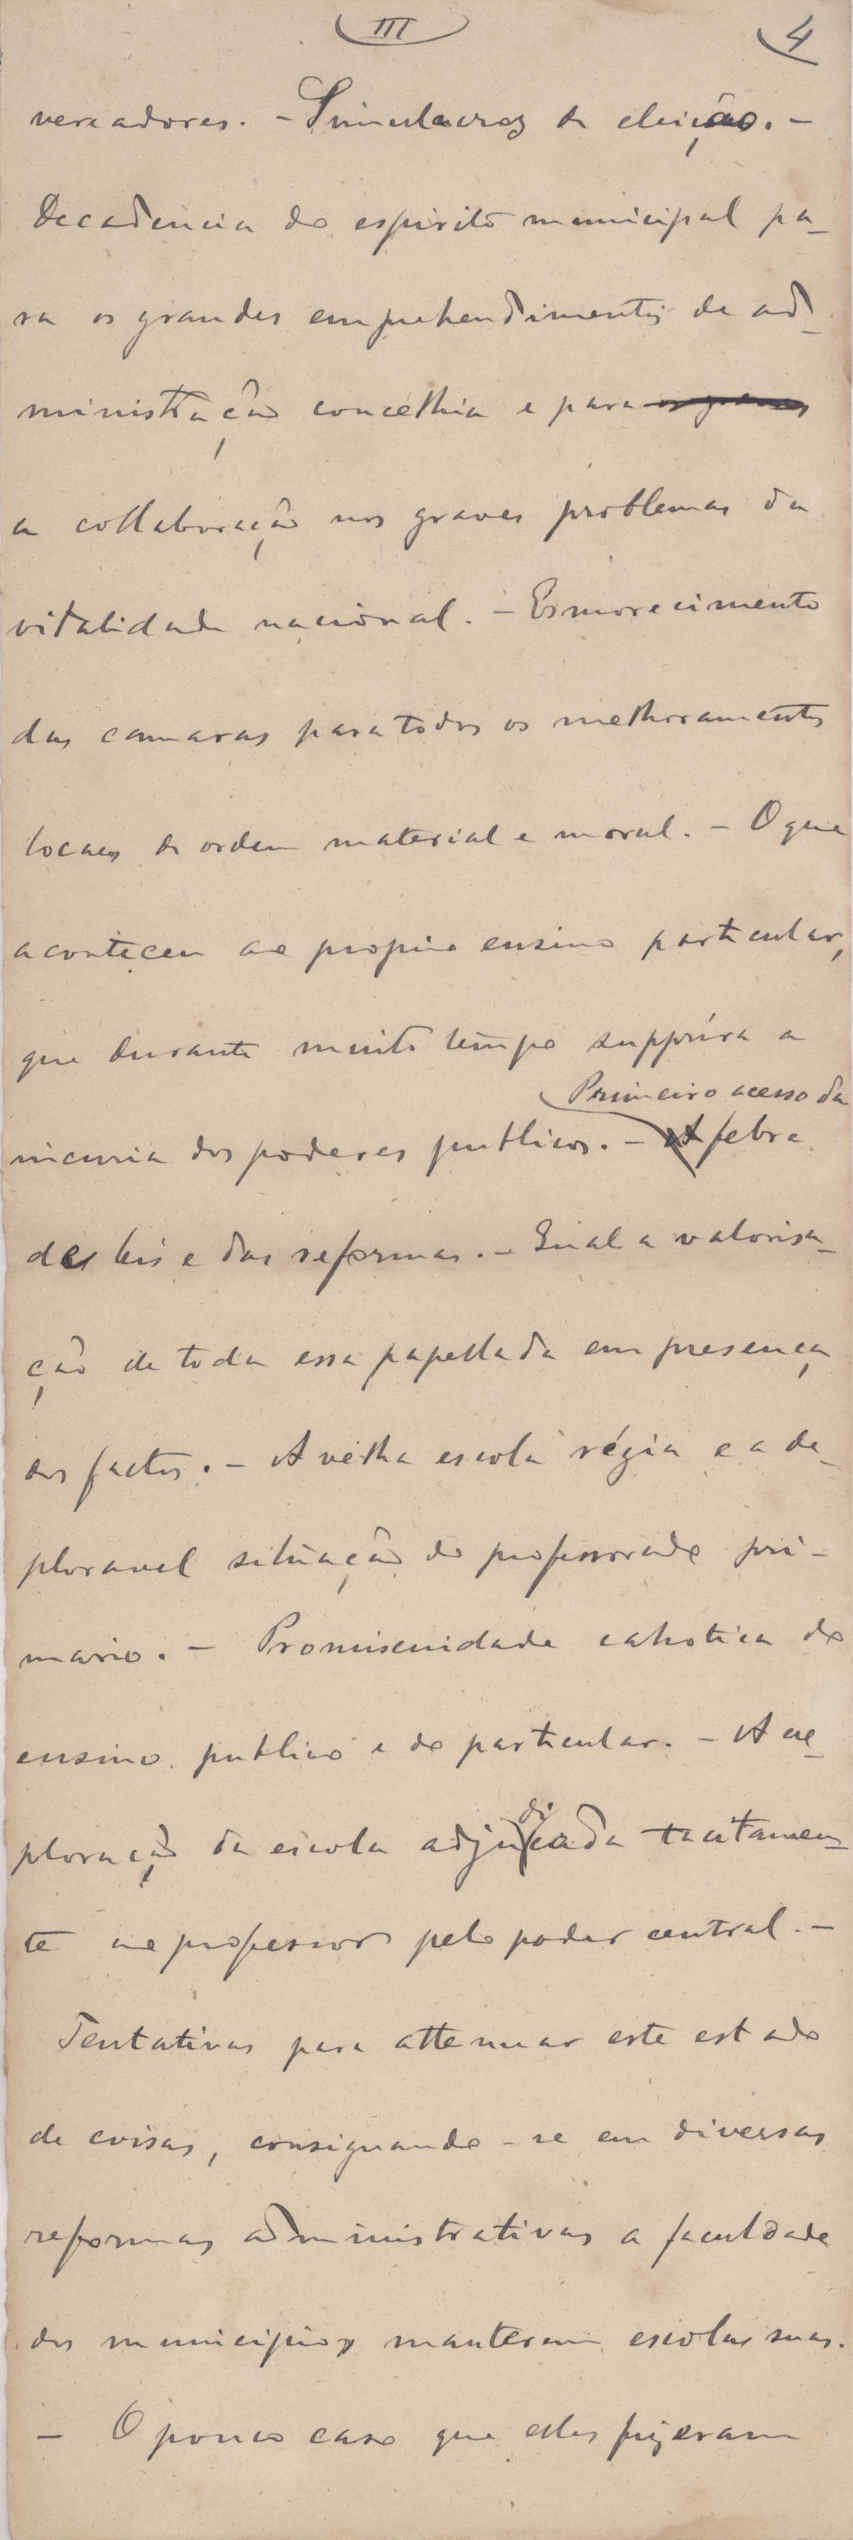 III
4
vereadores. - Simulacros de eleição. -
Decadencia do espirito municipal pa-
ra os grandes emprehendimentos de ad-
ministração concelhia e para os graves
a collaboração nos graves problemas da
vitalidade nacional. - Esmorecimento
das camaras para todos os melhoramentos
locaes de ordem material e moral. - O que
aconteceu ao proprio ensino particular,
que durante muito tempo supprira a
Primeiro acesso da
incuria dos poderes publicos. - A febre
das leis e das reformas. - Qual a valorisa-
ção de toda essa papellada em presença
dos factos. - A velha escola régia e a de-
ploravel situação do professorado pri-
mario. - Promiscuidade cahotica do
ensino publico e do particular. - A ex-
ploração da escola adjudicada tacitamen-
te ao professor pelo poder central. -
Tentativas para attenuar este estado
de coisas, consignando-se em diversas
reformas administrativas a faculdade
dos municipios manterem escolas suas.
- O pouco caso que elles fizeram